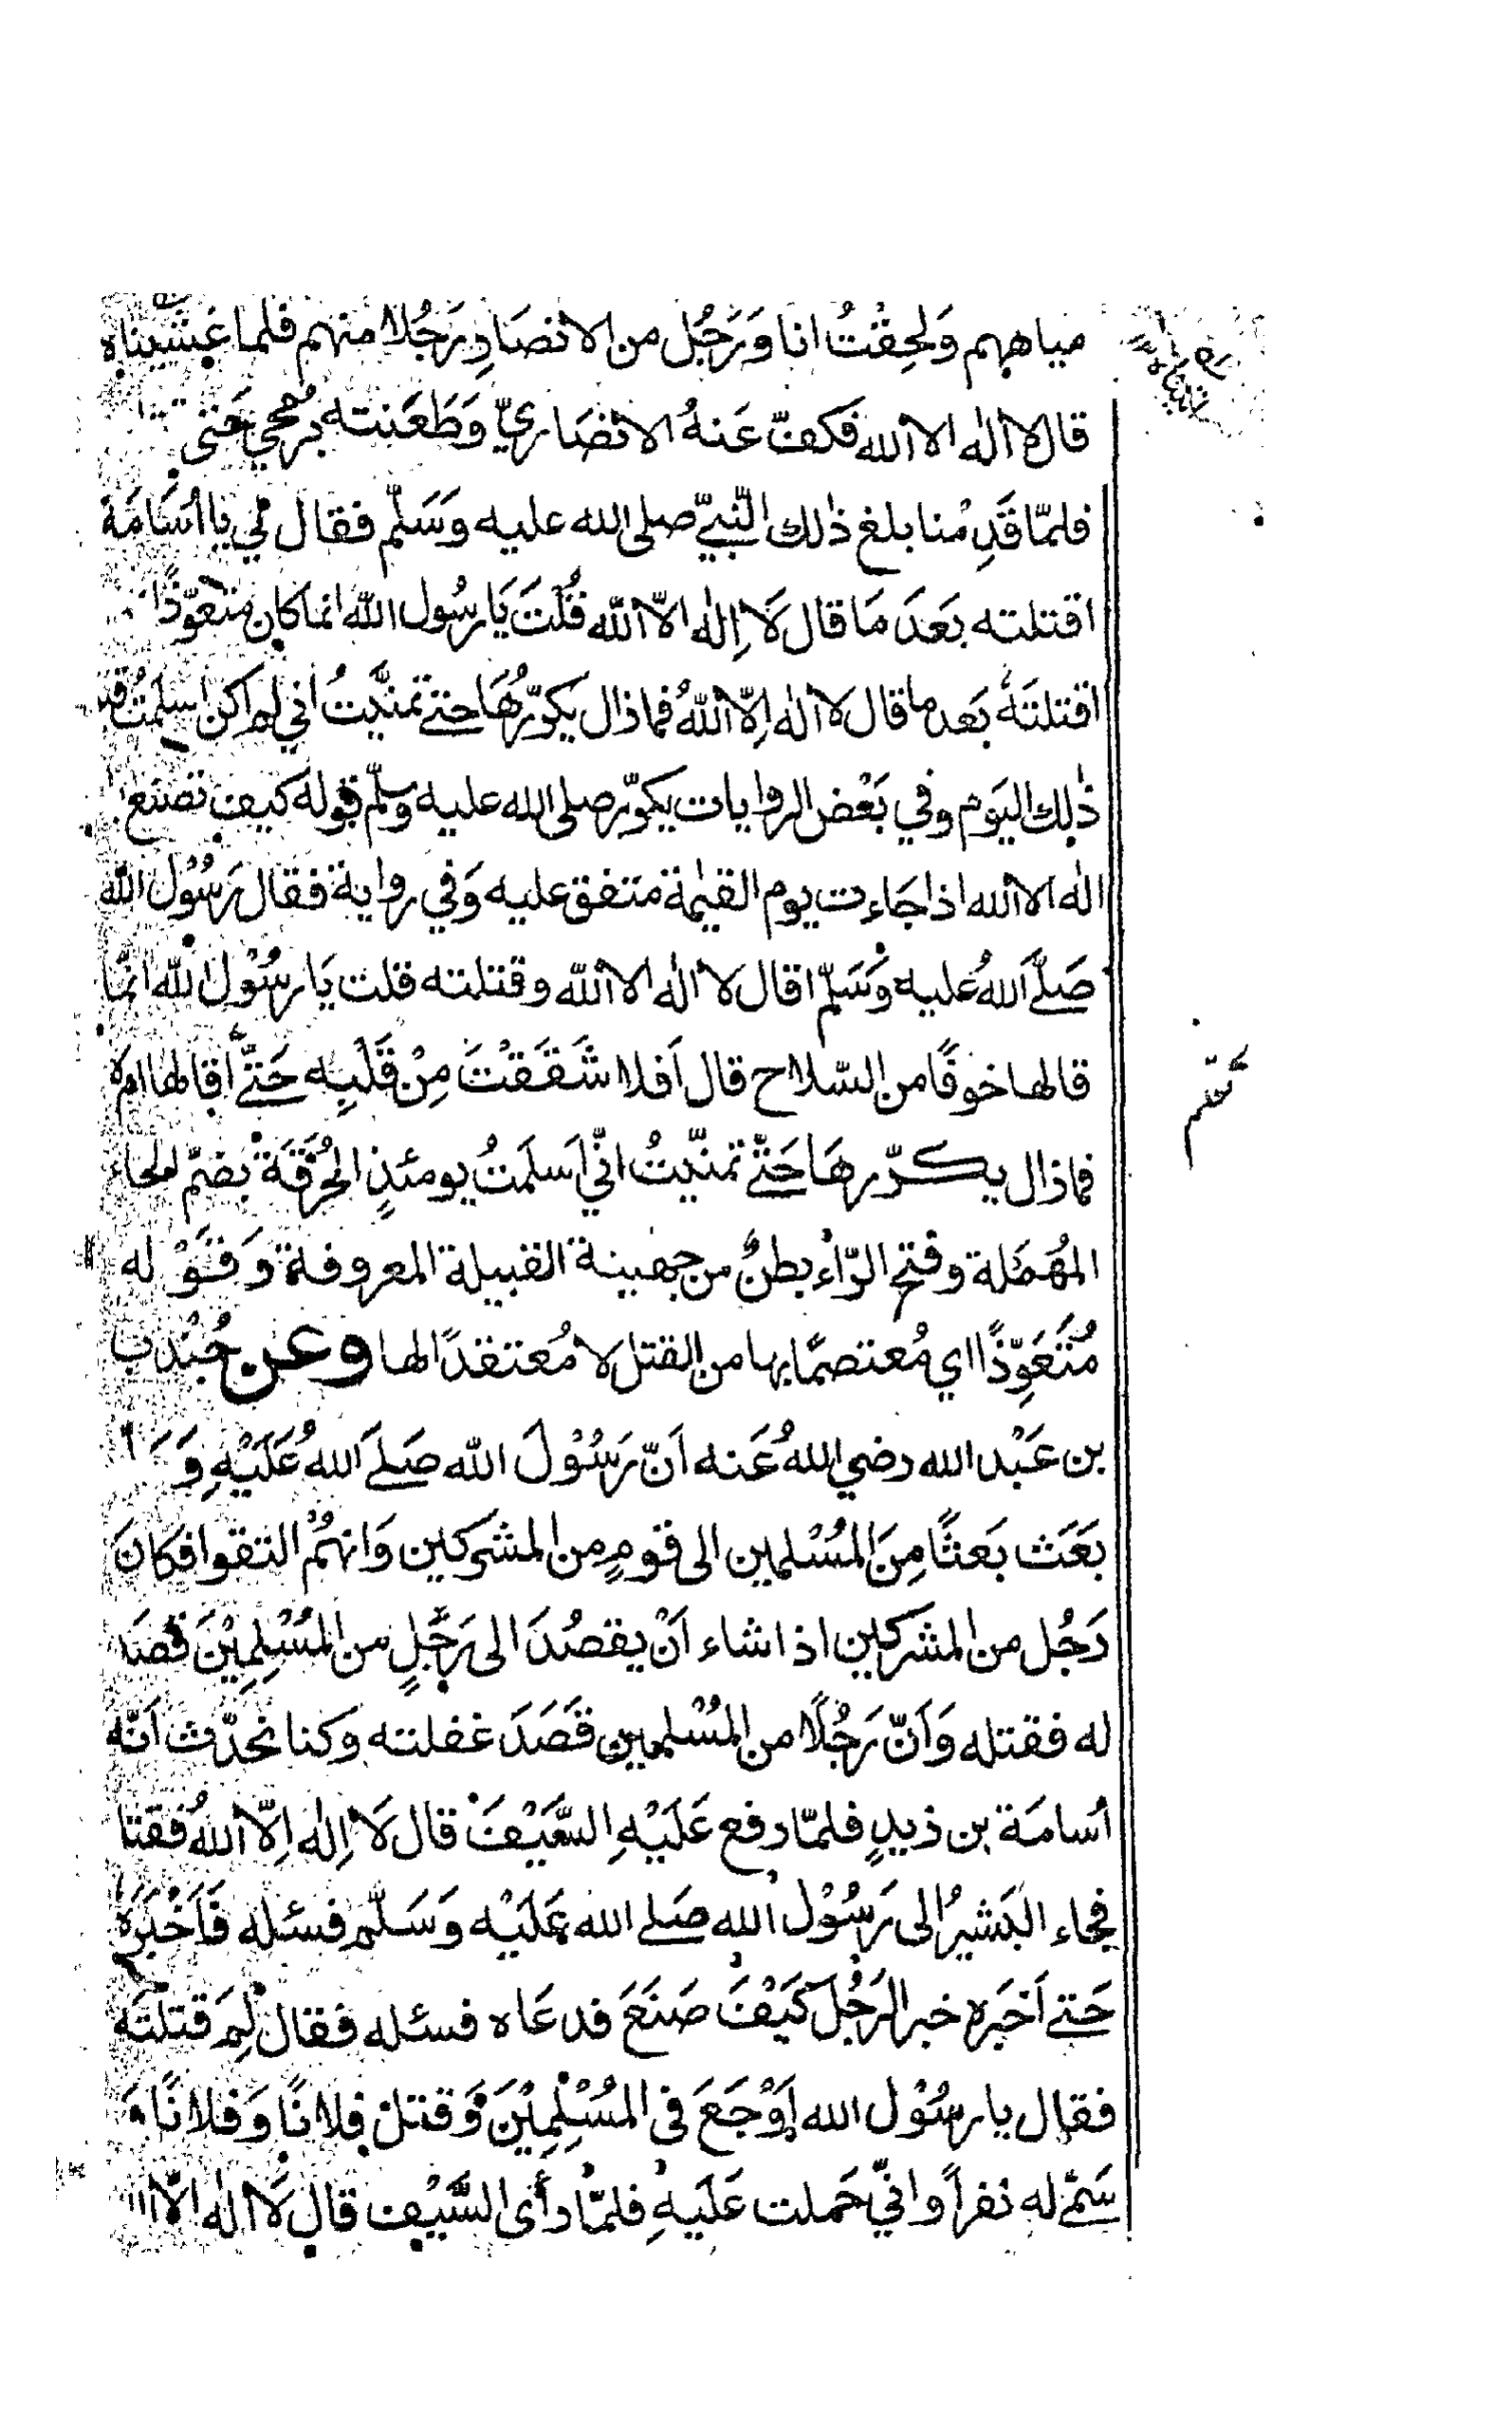 مياههم وَلحِقْتُ انا وَرَجُل من الانصَارِ رَجُلا منهم فلما غشيناه
قال لا اله الا الله فكفّ عَنهُ الانصَاريّ وَطَعَنته برُمحي حَتى
فلمّا قَدِمْنا بلغ ذلك النّبيّ صلى الله عليه وَسَلّم فقال لي يا اُسَامَة
اقتلته بَعَدَ مَا قال لَا اِلٰه الاّ الله قُلْتَ يَا رسُول الله انما كان متعوّذا
اقتلتَهُ بَعد ما قال لا اله اِلّا اللهُ فماذال يكرّرُهَا حتے تمنّيتُ اني لم اكن اسلمتُ قبل
ذٰلك اليَوم وفي بَعْض الروايات يكرّر صلى الله عليه وسلّم قوله كيف تصنع
اله الا الله اذا جَاءت يوم القيٰمة متفق عليه وَفي رواية فقال رَسُوْل الله
صَلَّے اَللهُ عليه وَسَلّم اقال لا اله الا الله وقتلته قلت يَا رسُوْل الله انّما
قالها خوفًا من السّلاح قال اَفلا شَقَقْتَ مِنْ قَلْبِه حَتّے اقالها ام لا
فماذال يكرّرهَا حَتّے تمنّيتُ انّي اَسلَمتُ يومئذٍ الحُرَقَة بضمّ الحاء
المُهمَلة وفتح الرّاء بطنٌ من جهينة القبيلة المعروفة وَقَوْله
مُتَعَوِّذًا اي مُعتصمًا بها من القتل لا مُعتقدًا لها وعن جُنْدُب
بن عَبْد الله رضي اللهُ عَنه اَنّ رَسُوْلَ الله صَلے اَللهُ عَلَيْهِ وَ
بَعَث بَعثًا مِنَ المُسْلمين الى قومٍ من المشركين وَانهُمُ التقوا فكانَ
رَجُل من المشركين اذا شاء اَنْ يقصُدَ الى رَجُلٍ من المُسْلِمِيْنَ قصَد
له فقتله وَاَنّ رَجُلًا من المُسْلمين قَصَدَ غفلته وكنا نحدّث اَنّه
اُسامَة بن ذيدٍ فلمّا رفع عَلَيْهِ السَّيْفَ قال لَا اِلٰه اِلّا اللهُ فقتله
فجاء البَشيرُ الى رَسُوْل الله صَلے الله عَلَيْه وَسَلّم فسئله فَاَخْبَرَهُ
حَتے اَخبَره خبر الرَجُل كَيْفَ صَنَعَ فدعَاه فسئله فقال لِمَ قتلتَه
فقال يا رسُوْل الله اَوْجَعَ فى المُسْلِمِيْنَ وَقتل فلانًا وَفلانًا وَ
سَمّے له نفراً وانّي حَملت عَلَيهِ فلمّا رأى السَّيْف قال لَا اله الّا ال